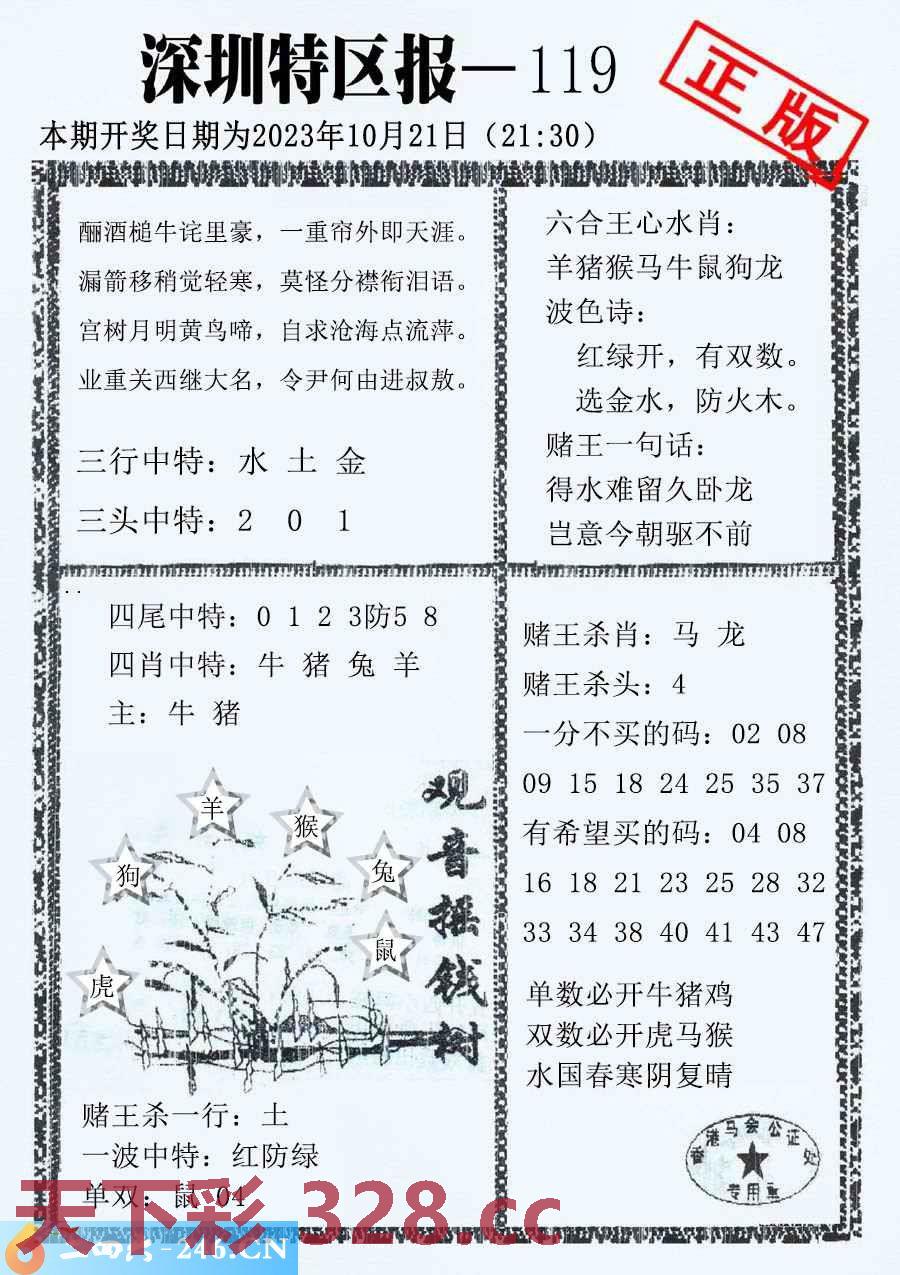 深圳特区报—119
正版
本期开奖日期为2023年10月21日（21:30）
酾酒槌牛诧里豪，一重帘外即天涯。
漏箭移稍觉轻寒，莫怪分襟衔泪语。
宫树月明黄鸟啼，自求沧海点流萍。
业重关西继大名，令尹何由进叔敖。
三行中特：水 土 金
三头中特：2 0 1
六合王心水肖：
羊猪猴马牛鼠狗龙
波色诗：
红绿开，有双数。
选金水，防火木。
赌王一句话：
得水难留久卧龙
岂意今朝驱不前
四尾中特：0 1 2 3防5 8
四肖中特：牛 猪 兔 羊
主：牛 猪
羊
猴
狗
兔
鼠
虎
观音摇钱树
赌王杀一行：土
一波中特：红防绿
单双：鼠 04
赌王杀肖：马 龙
赌王杀头：4
一分不买的码：02 08
09 15 18 24 25 35 37
有希望买的码：04 08
16 18 21 23 25 28 32
33 34 38 40 41 43 47
单数必开牛猪鸡
双数必开虎马猴
水国春寒阴复晴
香港马会公证处
专用章
天下彩 328.cc
-246.CN